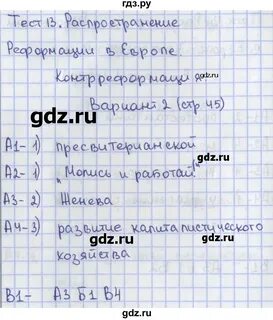 гдз.ру
Тест 13. Распространение
Реформации в Европе.
Контрреформация
Вариант 2 (стр 45)
А1- 1) пресвитерианской
А2- 1) "Молись и работай!"
А3- 2) Женева
А4- 3) развитие капиталистического
хозяйства
В1- А3 Б1 В4